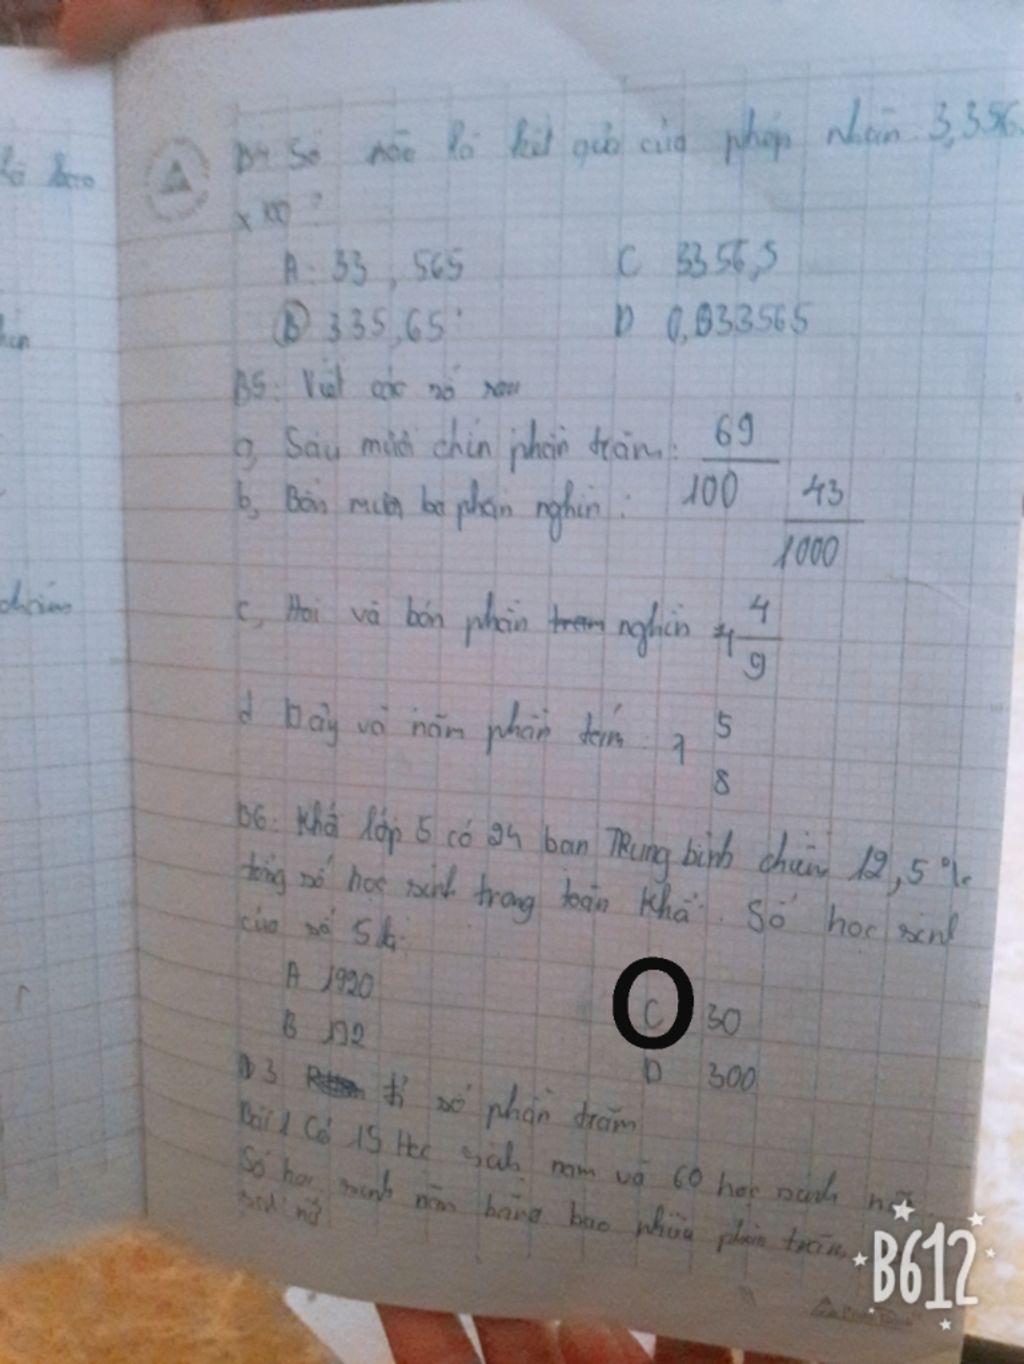 B4 Số nào là kết quả của phép nhân 3,356
x 100 ?
A. 33,565
C 3356,5
B 335,65
D 0,033565
B5: Viết các số sau
a, Sáu mươi chín phần trăm: 69/100
b, Bốn mươi ba phần nghìn: 43/1000
c, Hai và bốn phần nghìn 4/9
d Bảy và năm phần tám 7 5/8
B6: Khả lớp 5 có 24 bạn Trung bình chiếm 12,5%
tổng số học sinh trong toàn khả. Số học sinh
của số 5 là:
A 1920
C 30
B 192
D 300
D3 tỉ số phần trăm
Bài 1 Có 15 Học sinh nam và 60 học sinh nữ.
Số học sinh nam bằng bao nhiêu phần trăm
sinh nữ
B612